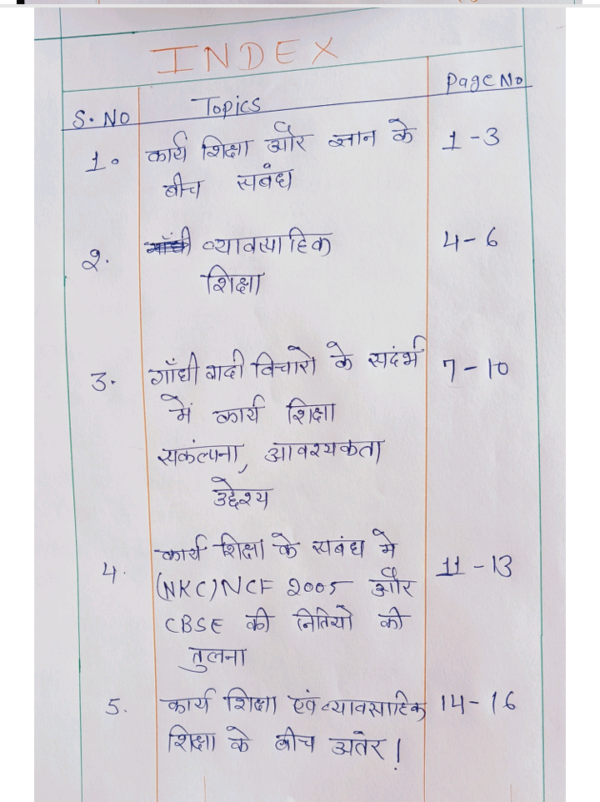 INDEX
S. NO Topics Page No
1. कार्य शिक्षा और ज्ञान के 1-3
बीच सबंध
2. व्यावसाहिक 4-6
शिक्षा
3. गाँधी वादी विचारो के सदंर्भ 7-10
में कार्य शिक्षा
सकंल्पना, आवश्यकता
उद्देश्य
4. कार्य शिक्षा के सबंध मे 11-13
(NKC) NCF 2005 और
CBSE की नितियो की
तुलना
5. कार्य शिक्षा एवं व्यावसाहिक 14-16
शिक्षा के बीच अतंर!